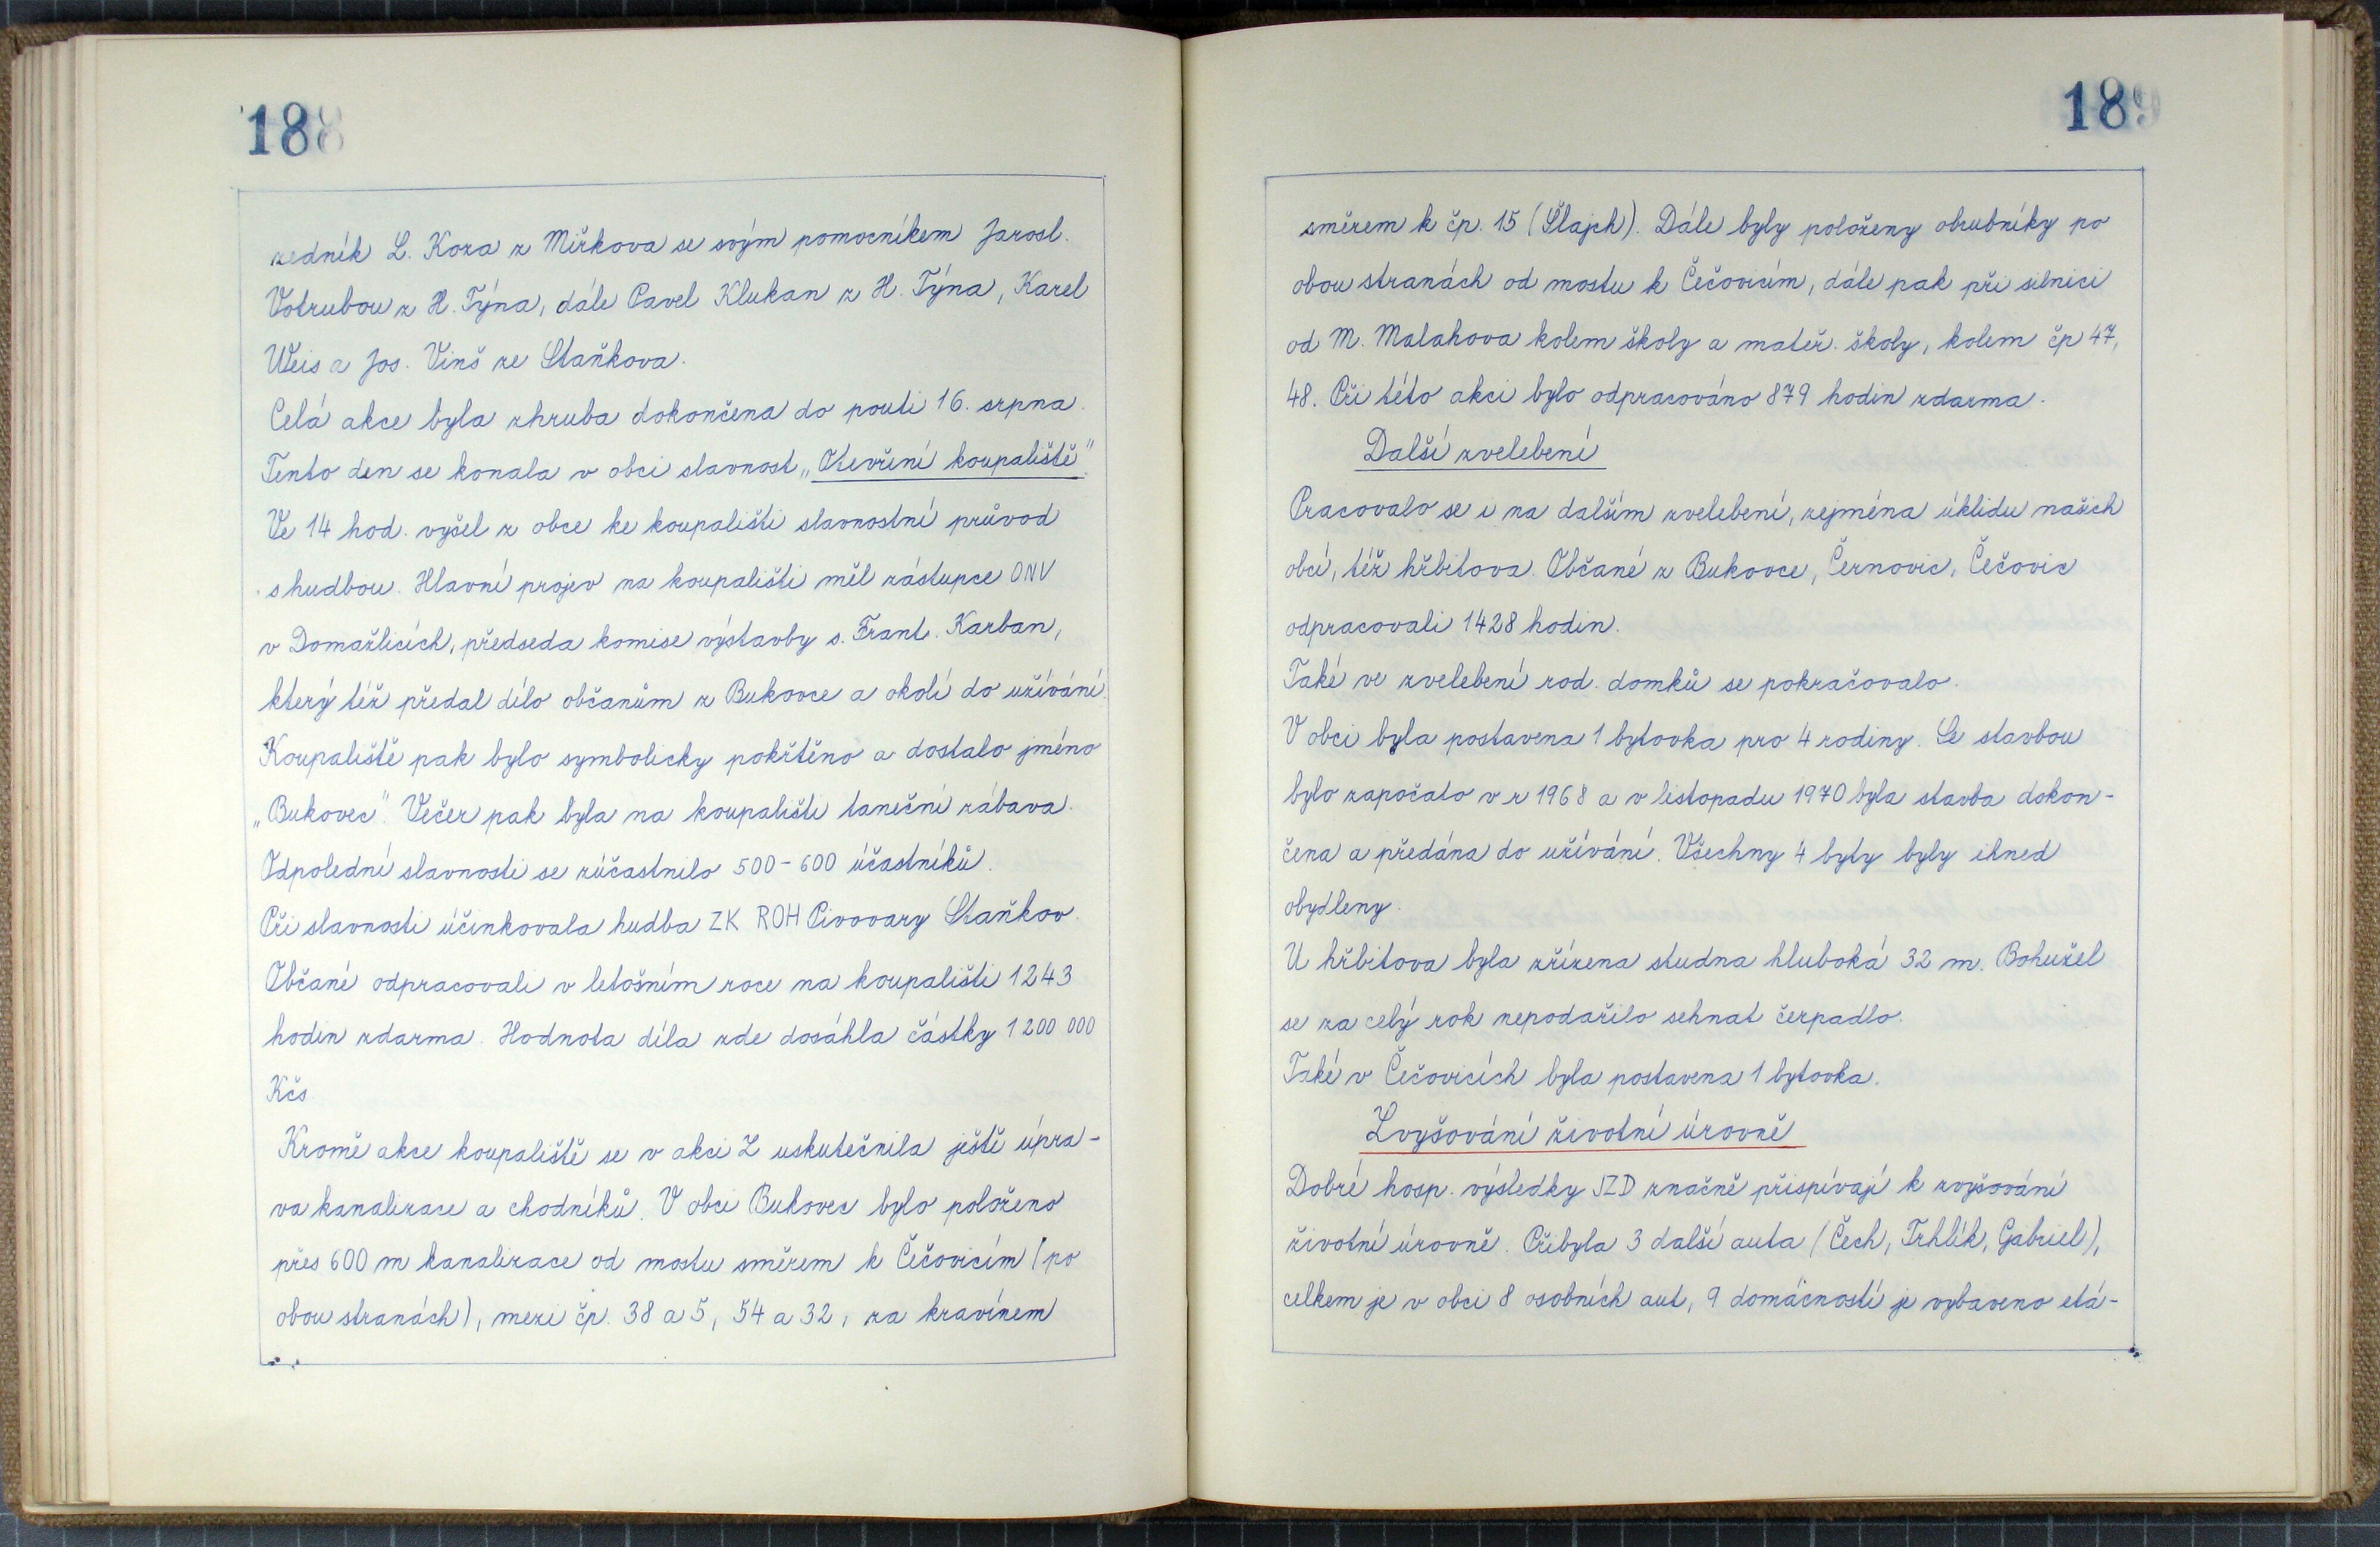 188
zedník L. Koza z Miřkova se svým pomocníkem Jarosl.
Votrubou z H. Týna, dále Pavel Klukan z H. Týna, Karel
Weis a Jos. Vinš ze Staňkova.
Celá akce byla zhruba dokončena do pouti 16. srpna.
Tento den se konala v obci slavnost „Otevření koupaliště".
Ve 14 hod. vyšel z obce ke koupališti slavnostní průvod
s hudbou. Hlavní projev na koupališti měl zástupce ONV
v Domažlicích, předseda komise výstavby s. Frant. Karban,
který též předal dílo občanům z Bukovce a okolí do užívání.
Koupaliště pak bylo symbolicky pokřtěno a dostalo jméno
„Bukovec". Večer pak byla na koupališti taneční zábava.
Odpolední slavnosti se zúčastnilo 500-600 účastníků.
Při slavnosti účinkovala hudba ZK ROH Pivovary Staňkov.
Občané odpracovali v letošním roce na koupališti 1243
hodin zdarma. Hodnota díla zde dosáhla částky 1 200 000
Kčs
Kromě akce koupaliště se v akci Z uskutečnila ještě úpra-
va kanalizace a chodníků. V obci Bukovec bylo položeno
přes 600 m kanalizace od mostu směrem k Čečovicím (po
obou stranách), mezi čp. 38 a 5, 54 a 32, za kravínem
189
směrem k čp. 15 (Šlajch). Dále byly položeny obrubníky po
obou stranách od mostu k Čečovicím, dále pak při silnici
od M. Malahova kolem školy a mateř. školy, kolem čp 47,
48. Při této akci bylo odpracováno 879 hodin zdarma.
Další zvelebení
Pracovalo se i na dalším zvelebení, zejména úklidu našich
obcí, též hřbitova. Občané z Bukovce, Černovic, Čečovic
odpracovali 1428 hodin.
Také ve zvelebení rod. domků se pokračovalo.
V obci byla postavena 1 bytovka pro 4 rodiny. Se stavbou
bylo započato v r 1968 a v listopadu 1970 byla stavba dokon-
čena a předána do užívání. Všechny 4 byty byly ihned
obydleny.
U hřbitova byla zřízena studna hluboká 32 m. Bohužel
se za celý rok nepodařilo sehnat čerpadlo.
Také v Čečovicích byla postavena 1 bytovka.
Zvyšování životní úrovně
Dobré hosp. výsledky JZD značně přispívají k zvyšování
životní úrovně. Přibyla 3 další auta (Čech, Trhlík, Gabriel),
celkem je v obci 8 osobních aut, 9 domácností je vybaveno etá-